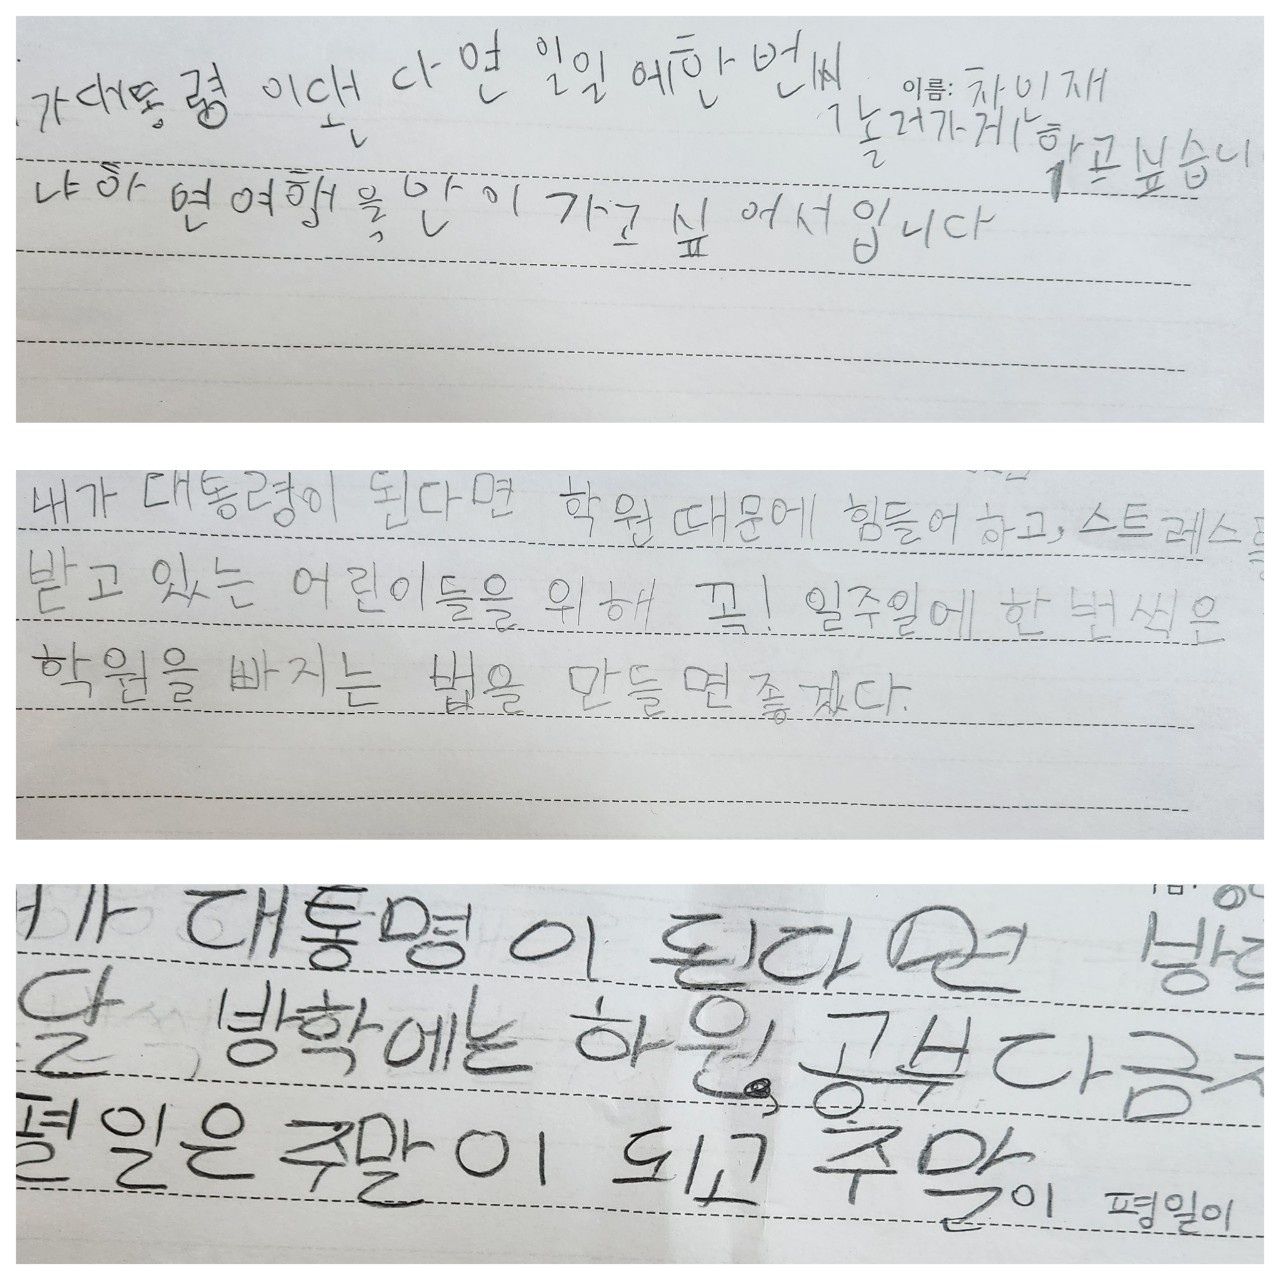 가대통령 이댄 다면 일일 에한 번씩
이름: 차민재
놀러가게 하고싶습니
냐하면 여행을 만이 가고 싶어서 입니다
내가 대통령이 된다면 학원 때문에 힘들어 하고, 스트레스를
받고 있는 어린이들을 위해 꼭! 일주일에 한 번씩은
학원을 빠지는 법을 만들면 좋겠다.
대통명이 된다면
달 방학에는 하원, 공부 다금
평일은 주말이 되고 주말이 평일이